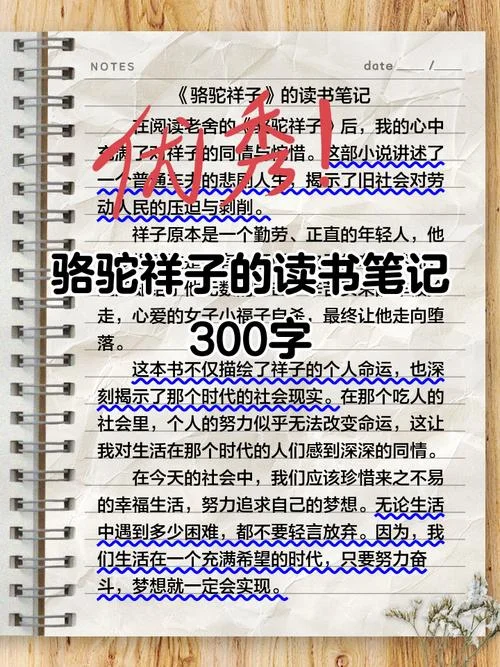 NOTES
date ___ / ___
《骆驼祥子》的读书笔记
在阅读老舍的《骆驼祥子》后，我的心中
充满了对祥子的同情与惋惜。这部小说讲述了
一个普通车夫的悲剧人生，揭示了旧社会对劳
动人民的压迫与剥削。
优秀!
祥子原本是一个勤劳、正直的年轻人，他
骆驼祥子的读书笔记
300字
走，心爱的女子小福子自杀，最终让他走向堕
落。
这本书不仅描绘了祥子的个人命运，也深
刻揭示了那个时代的社会现实。在那个吃人的
社会里，个人的努力似乎无法改变命运，这让
我对生活在那个时代的人们感到深深的同情。
在今天的社会中，我们应该珍惜来之不易
的幸福生活，努力追求自己的梦想。无论生活
中遇到多少困难，都不要轻言放弃。因为，我
们生活在一个充满希望的时代，只要努力奋
斗，梦想就一定会实现。